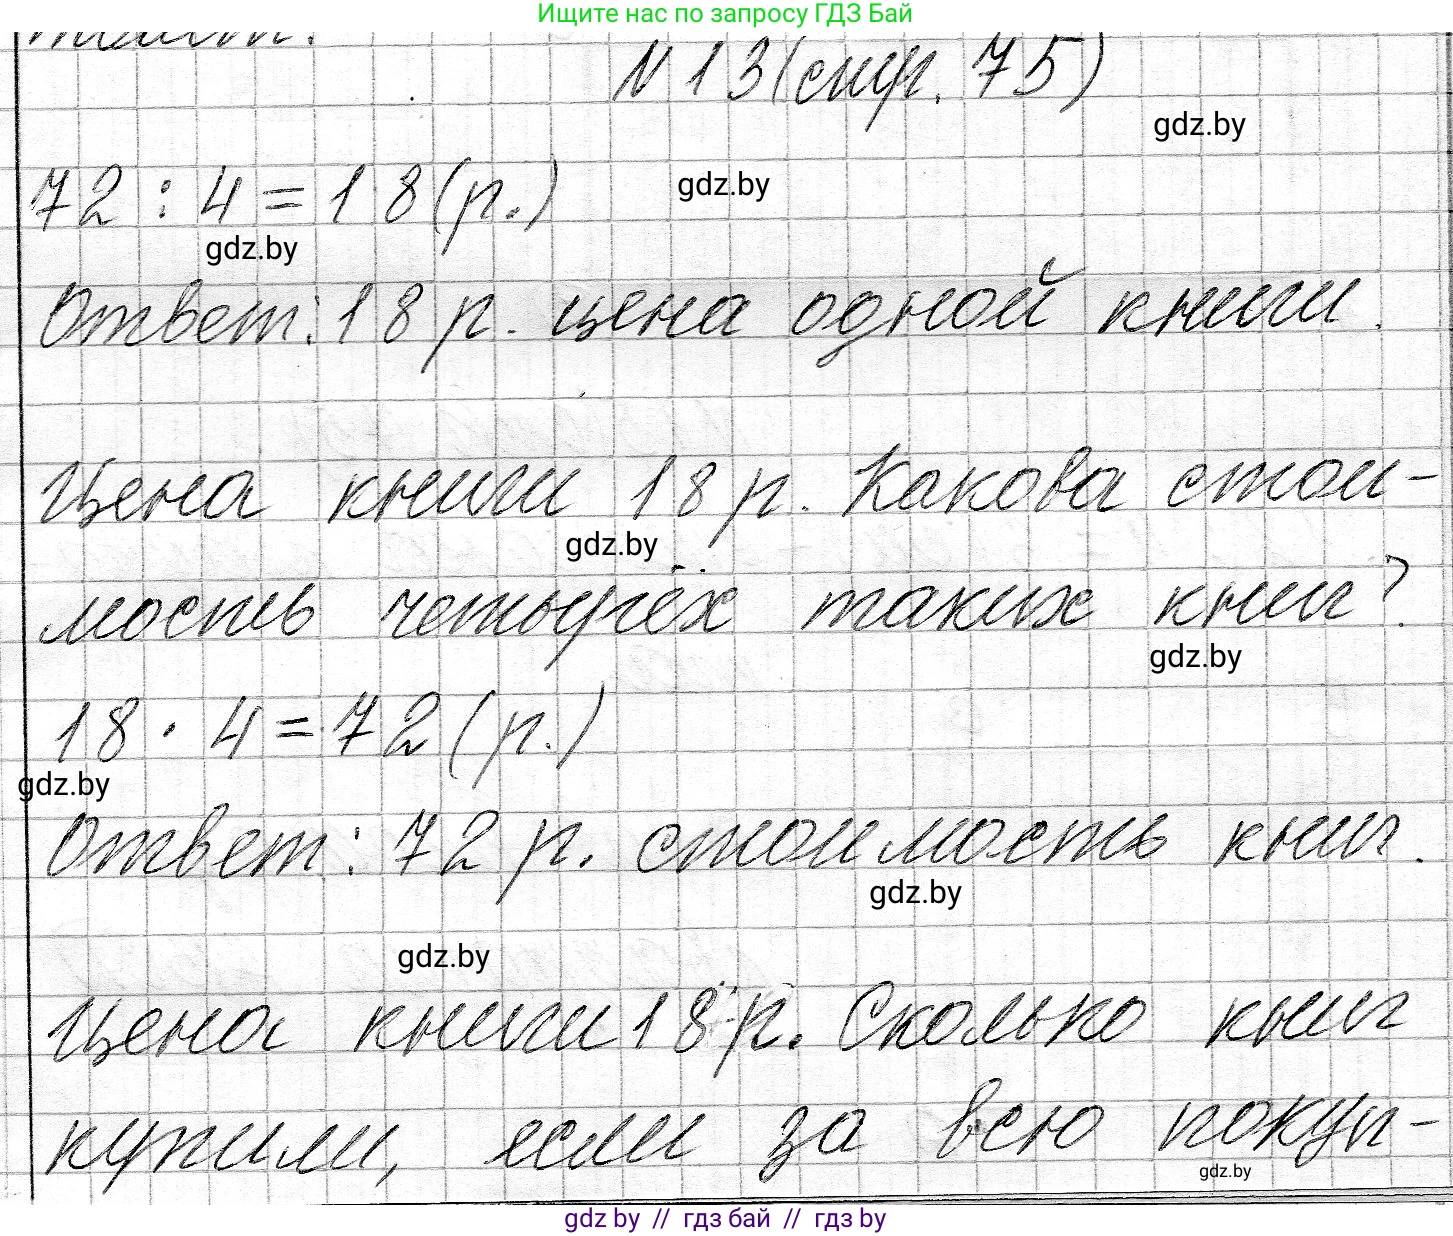 Ищите нас по запросу ГДЗ Бай
N 13 (стр. 75)
gdz.by
72 : 4 = 18 (р.)
gdz.by
gdz.by
Ответ: 18 р. цена одной книги.
Цена книги 18 р. Какова стои-
gdz.by
мость четырёх таких книг?
gdz.by
18 · 4 = 72 (р.)
gdz.by
Ответ: 72 р. стоимость книг.
gdz.by
gdz.by
Цена книги 18 р. Сколько книг
купили, если за всю покуп-
gdz.by
gdz by // гдз бай // гдз by